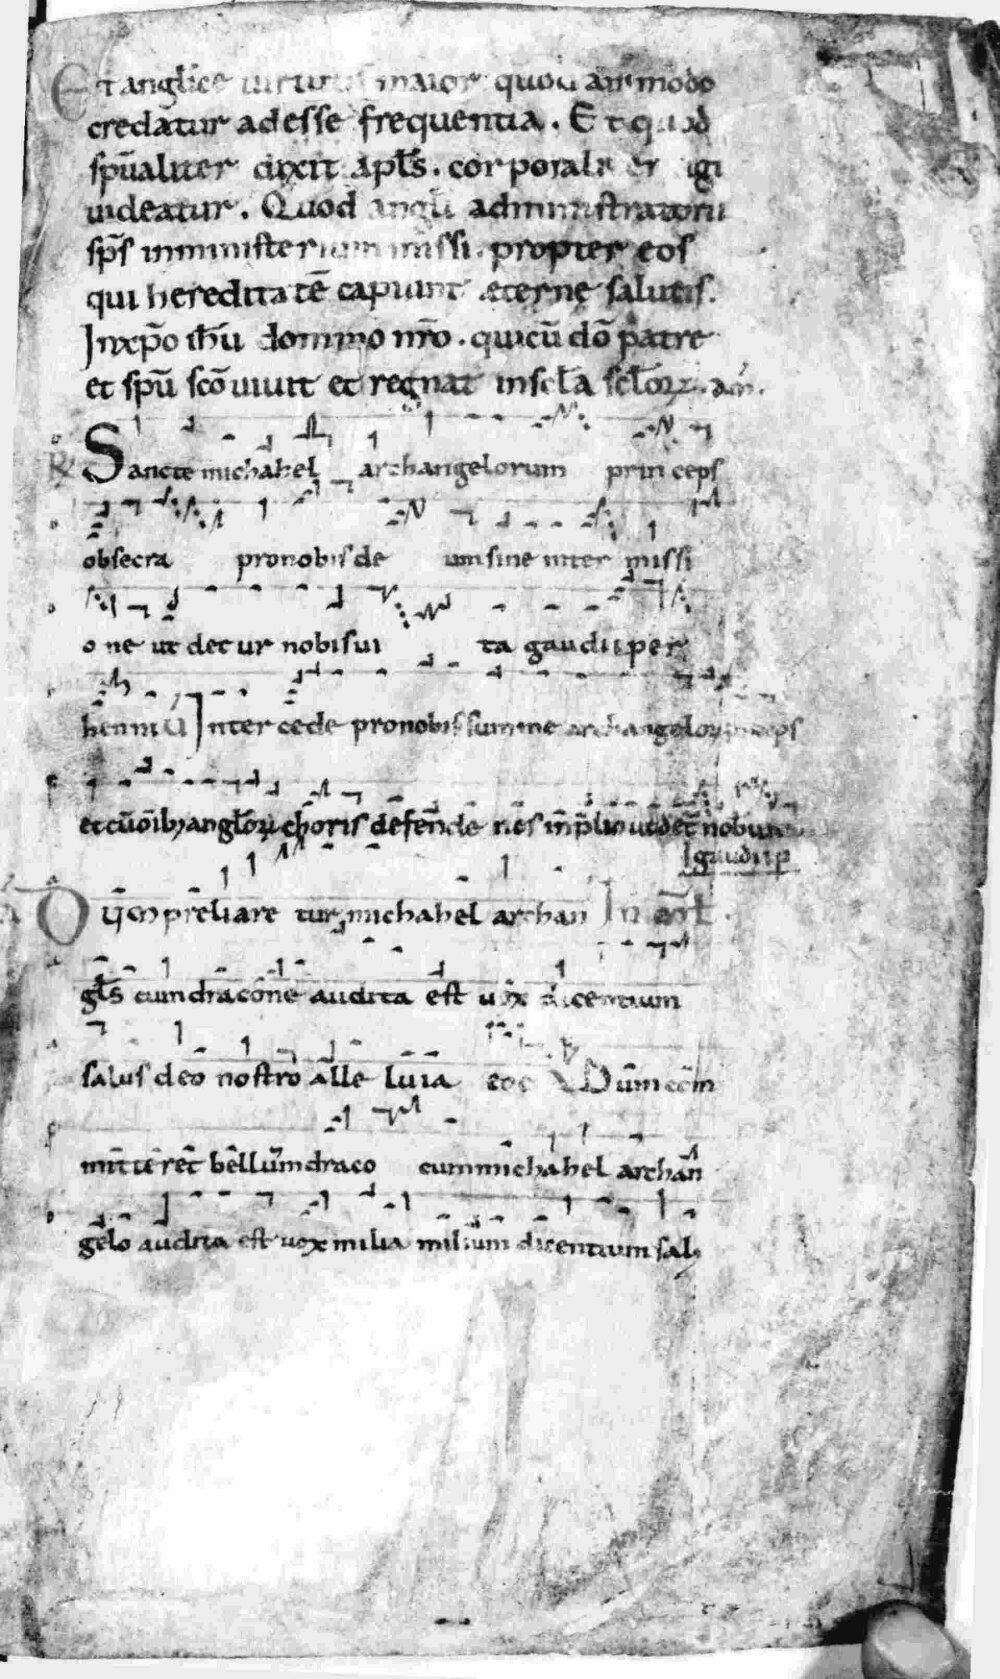 Et anglice uirtutis maior quodammodo
credatur adesse frequentia. Et quod
sp̄ualiter dixit apl̄s. corporaliter agi
uideatur. Quod angli administratorii
sp̄s inministerium missi. propter eos
qui hereditatē capiunt æterne salutis.
Inxp̄o ih̄u domino nr̄o. quicū dō patre
et sp̄u scō uiuit et regnat inscl̄a scl̄oꝝ. am̄.
℟ Sancte michahel archangelorum princeps
obsecra pronobis de umsine inter missi
o ne ut det ur nobis ui ta gaudii per
henniū Inter cede pronobis summe archangeloꝝ princeps
et cū oīb; angl̄oꝝ choris defende nos in p̄lio ut det nobis
gaudii p̄
preliare tur michahel archan In
gl̄s cum dracone audita est uox dicentium
salus deo nostro alle luia Dum com
mitteret bellum draco cum michahel archan
gelo audita est uox milia milium dicentium sal;